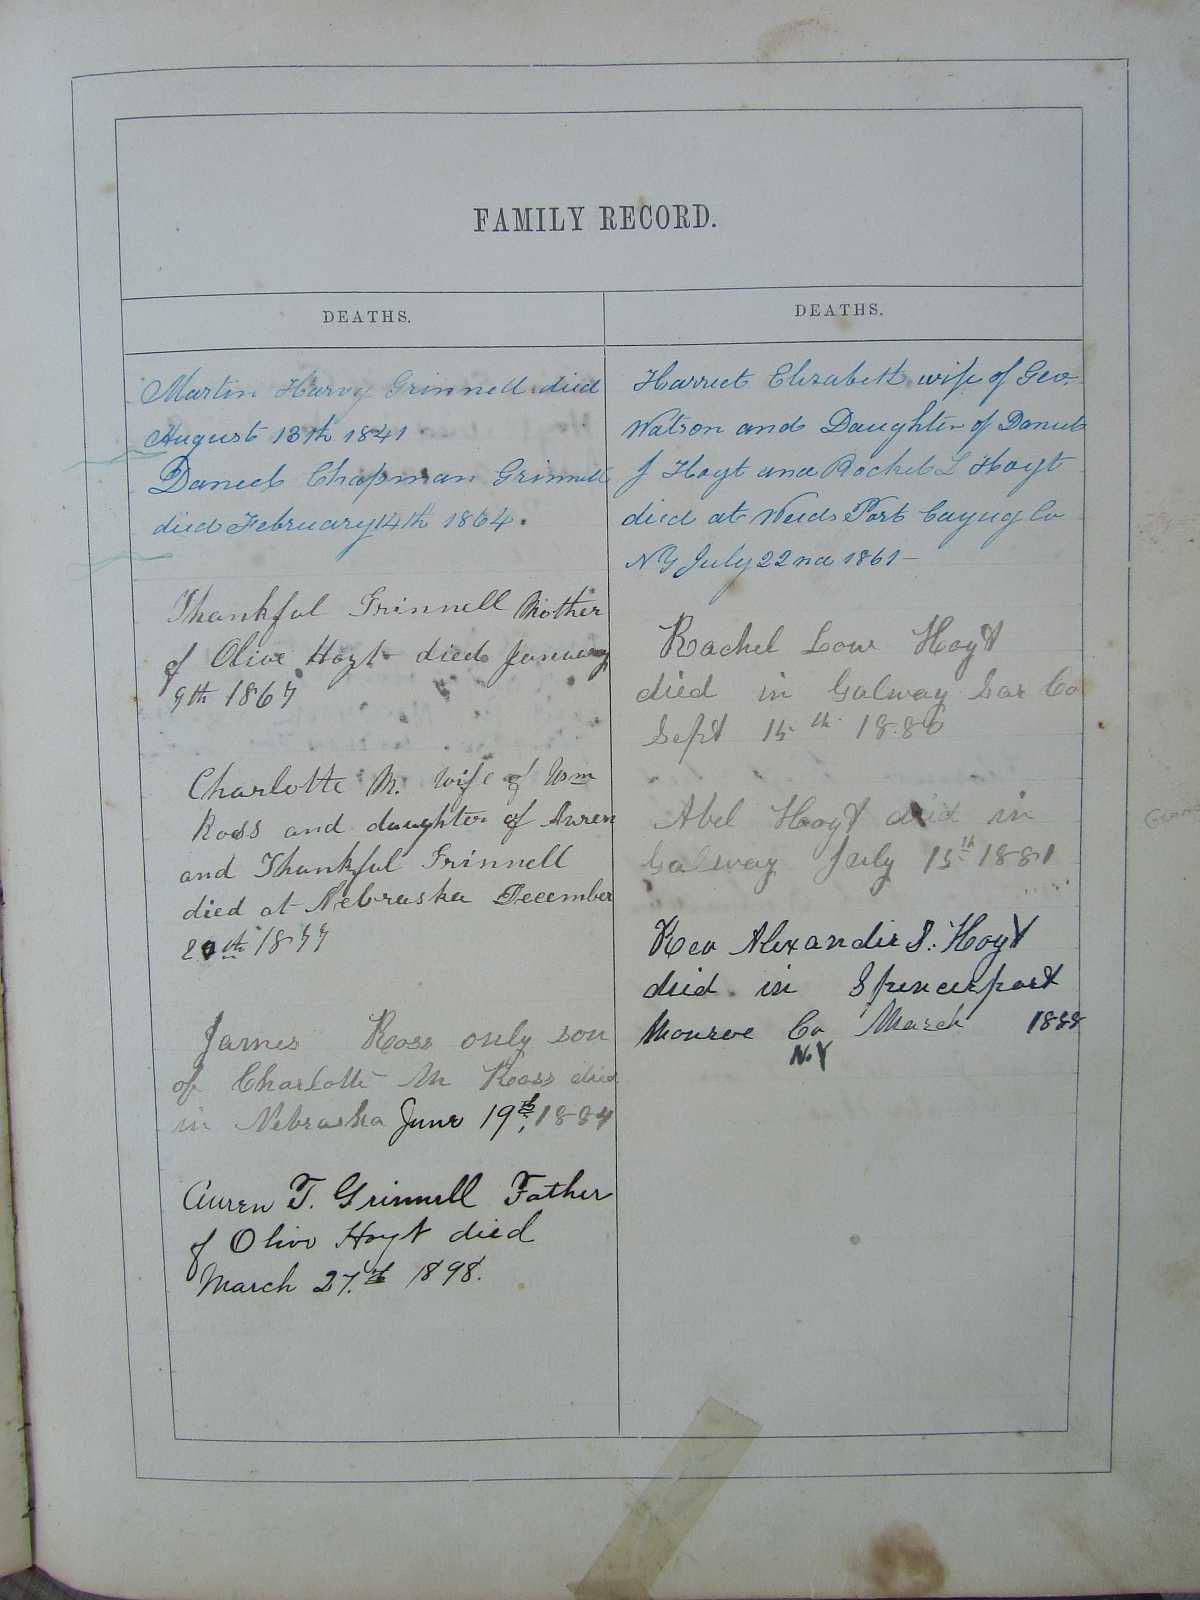 FAMILY RECORD.
DEATHS.
Martin Harvy Grinnell died
August 13th 1841
Daniel Chapman Grinnell
died February 14th 1864.
Thankful Grinnell Mother
of Olive Hoyt died January
9th 1867
Charlotte M. wife of Wm
Ross and daughter of Auren
and Thankful Grinnell
died at Nebraska December
20th 1877
James Ross only son
of Charlotte M Ross died
in Nebraska June 19th, 1884
Auren T. Grinnell Father
of Olive Hoyt died
March 27.th 1898.
DEATHS.
Harriet Elizabeth wife of Geo.
Watson and Daughter of Daniel
J Hoyt and Rachel L Hoyt
died at Weeds Port Cayug Co
NY July 22nd 1861-
Rachel Low Hoyt
died in Galway Sar Co
Sept 15th 1880
Abel Hoyt died in
Galway July 15th 1881
Rev Alexander S. Hoyt
died in Spencerport
Monroe Co March 1888
N.Y